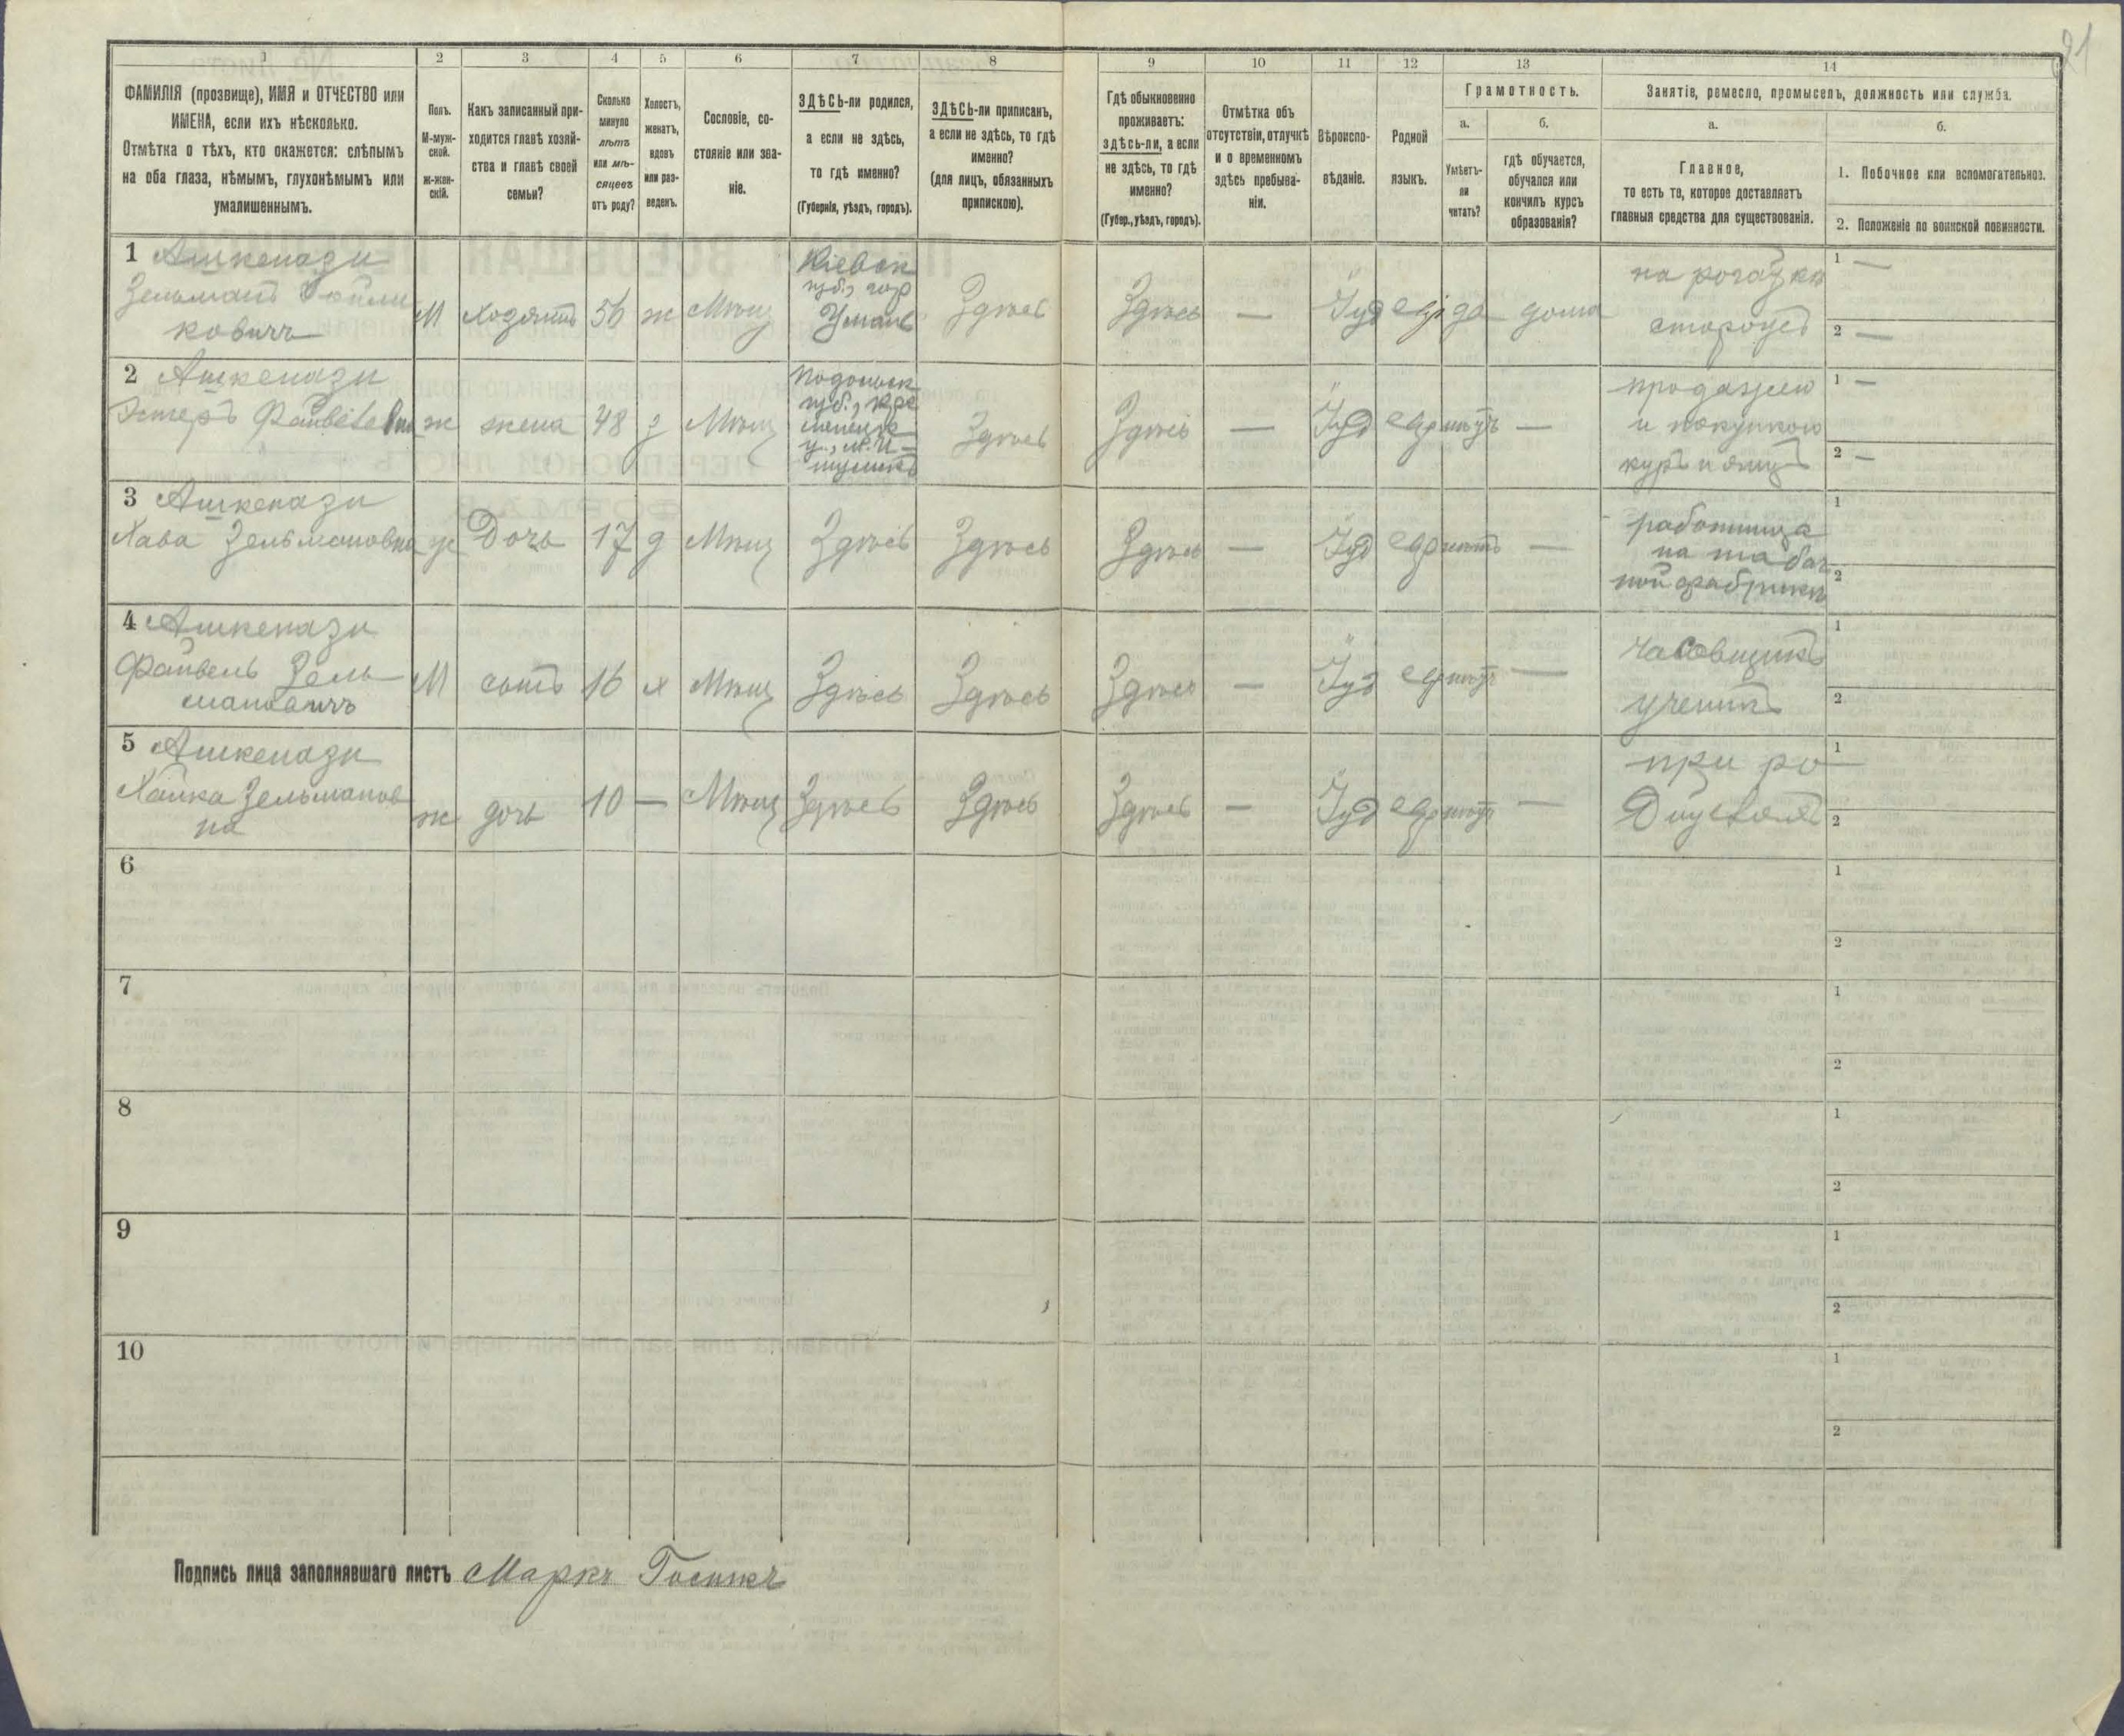 21
1 2 3 4 5 6 7 8 9 10 11 12 13 14
ФАМИЛІЯ (прозвище), ИМЯ и ОТЧЕСТВО или
ИМЕНА, если ихъ нѣсколько.
Отмѣтка о тѣхъ, кто окажется: слѣпымъ
на оба глаза, нѣмымъ, глухонѣмымъ или
умалишеннымъ.
Полъ.
М-муж-
ской.
ж-жен-
скій.
Какъ записанный при-
ходится главѣ хозяй-
ства и главѣ своей
семьи?
Сколько
минуло
лѣтъ
или мѣ-
сяцевъ
отъ роду?
Холостъ,
женатъ,
вдовъ
или раз-
веденъ.
Сословіе, со-
стояніе или зва-
ніе.
ЗДѢСЬ-ли родился,
а если не здѣсь,
то гдѣ именно?
(Губернія, уѣздъ, городъ).
ЗДѢСЬ-ли приписанъ,
а если не здѣсь, то гдѣ
именно?
(для лицъ, обязанныхъ
припискою).
Гдѣ обыкновенно
проживаетъ:
здѣсь-ли, а если
не здѣсь, то гдѣ
именно?
(Губер., уѣздъ, городъ).
Отмѣтка объ
отсутствіи, отлучкѣ
и о временномъ
здѣсь пребыва-
ніи.
Вѣроиспо-
вѣданіе.
Родной
языкъ.
Грамотность.
а.
Умѣетъ-
ли
читать?
б.
гдѣ обучается,
обучался или
кончилъ курсъ
образованія?
Занятіе, ремесло, промыселъ, должность или служба.
а.
Главное,
то есть то, которое доставляетъ
главныя средства для существованія.
б.
1. Побочное или вспомогательное.
2. Положеніе по воинской повинности.
1 Ашкенази
Зельманъ
ковичъ
М
Хозяинъ
56
ж
Мѣщ
Кіевск
губ., гор
Умань
Здѣсь
Здѣсь
—
Іуд
евр
да
дома
сторожъ
1 —
2 —
2 Ашкенази
Эстеръ
ж
жена
48
з
Мѣщ
Подольск
губ., Кре
менецк
Здѣсь
Здѣсь
—
Іуд
евр
нѣтъ
—
продажею
и покупкою
куръ и яицъ
1 —
2 —
3 Ашкенази
Хава Зельмановна
ж
Дочь
17
д
Мѣщ
Здѣсь
Здѣсь
Здѣсь
—
Іуд
евр
нѣтъ
—
работница
на табач
ной фабрикѣ
1
2
4 Ашкенази
Файвель Зель
мановичъ
М
сынъ
16
х
Мѣщ
Здѣсь
Здѣсь
Здѣсь
—
Іуд
евр
нѣтъ
—
часовщикъ
ученикъ
1
2
5 Ашкенази
Хайка Зельманов
на
ж
дочь
10
—
Мѣщ
Здѣсь
Здѣсь
Здѣсь
—
Іуд
евр
нѣтъ
—
при ро
1
2
6
1
2
7
1
2
8
1
2
9
1
2
10
1
2
Подпись лица заполнявшаго листъ Маркъ